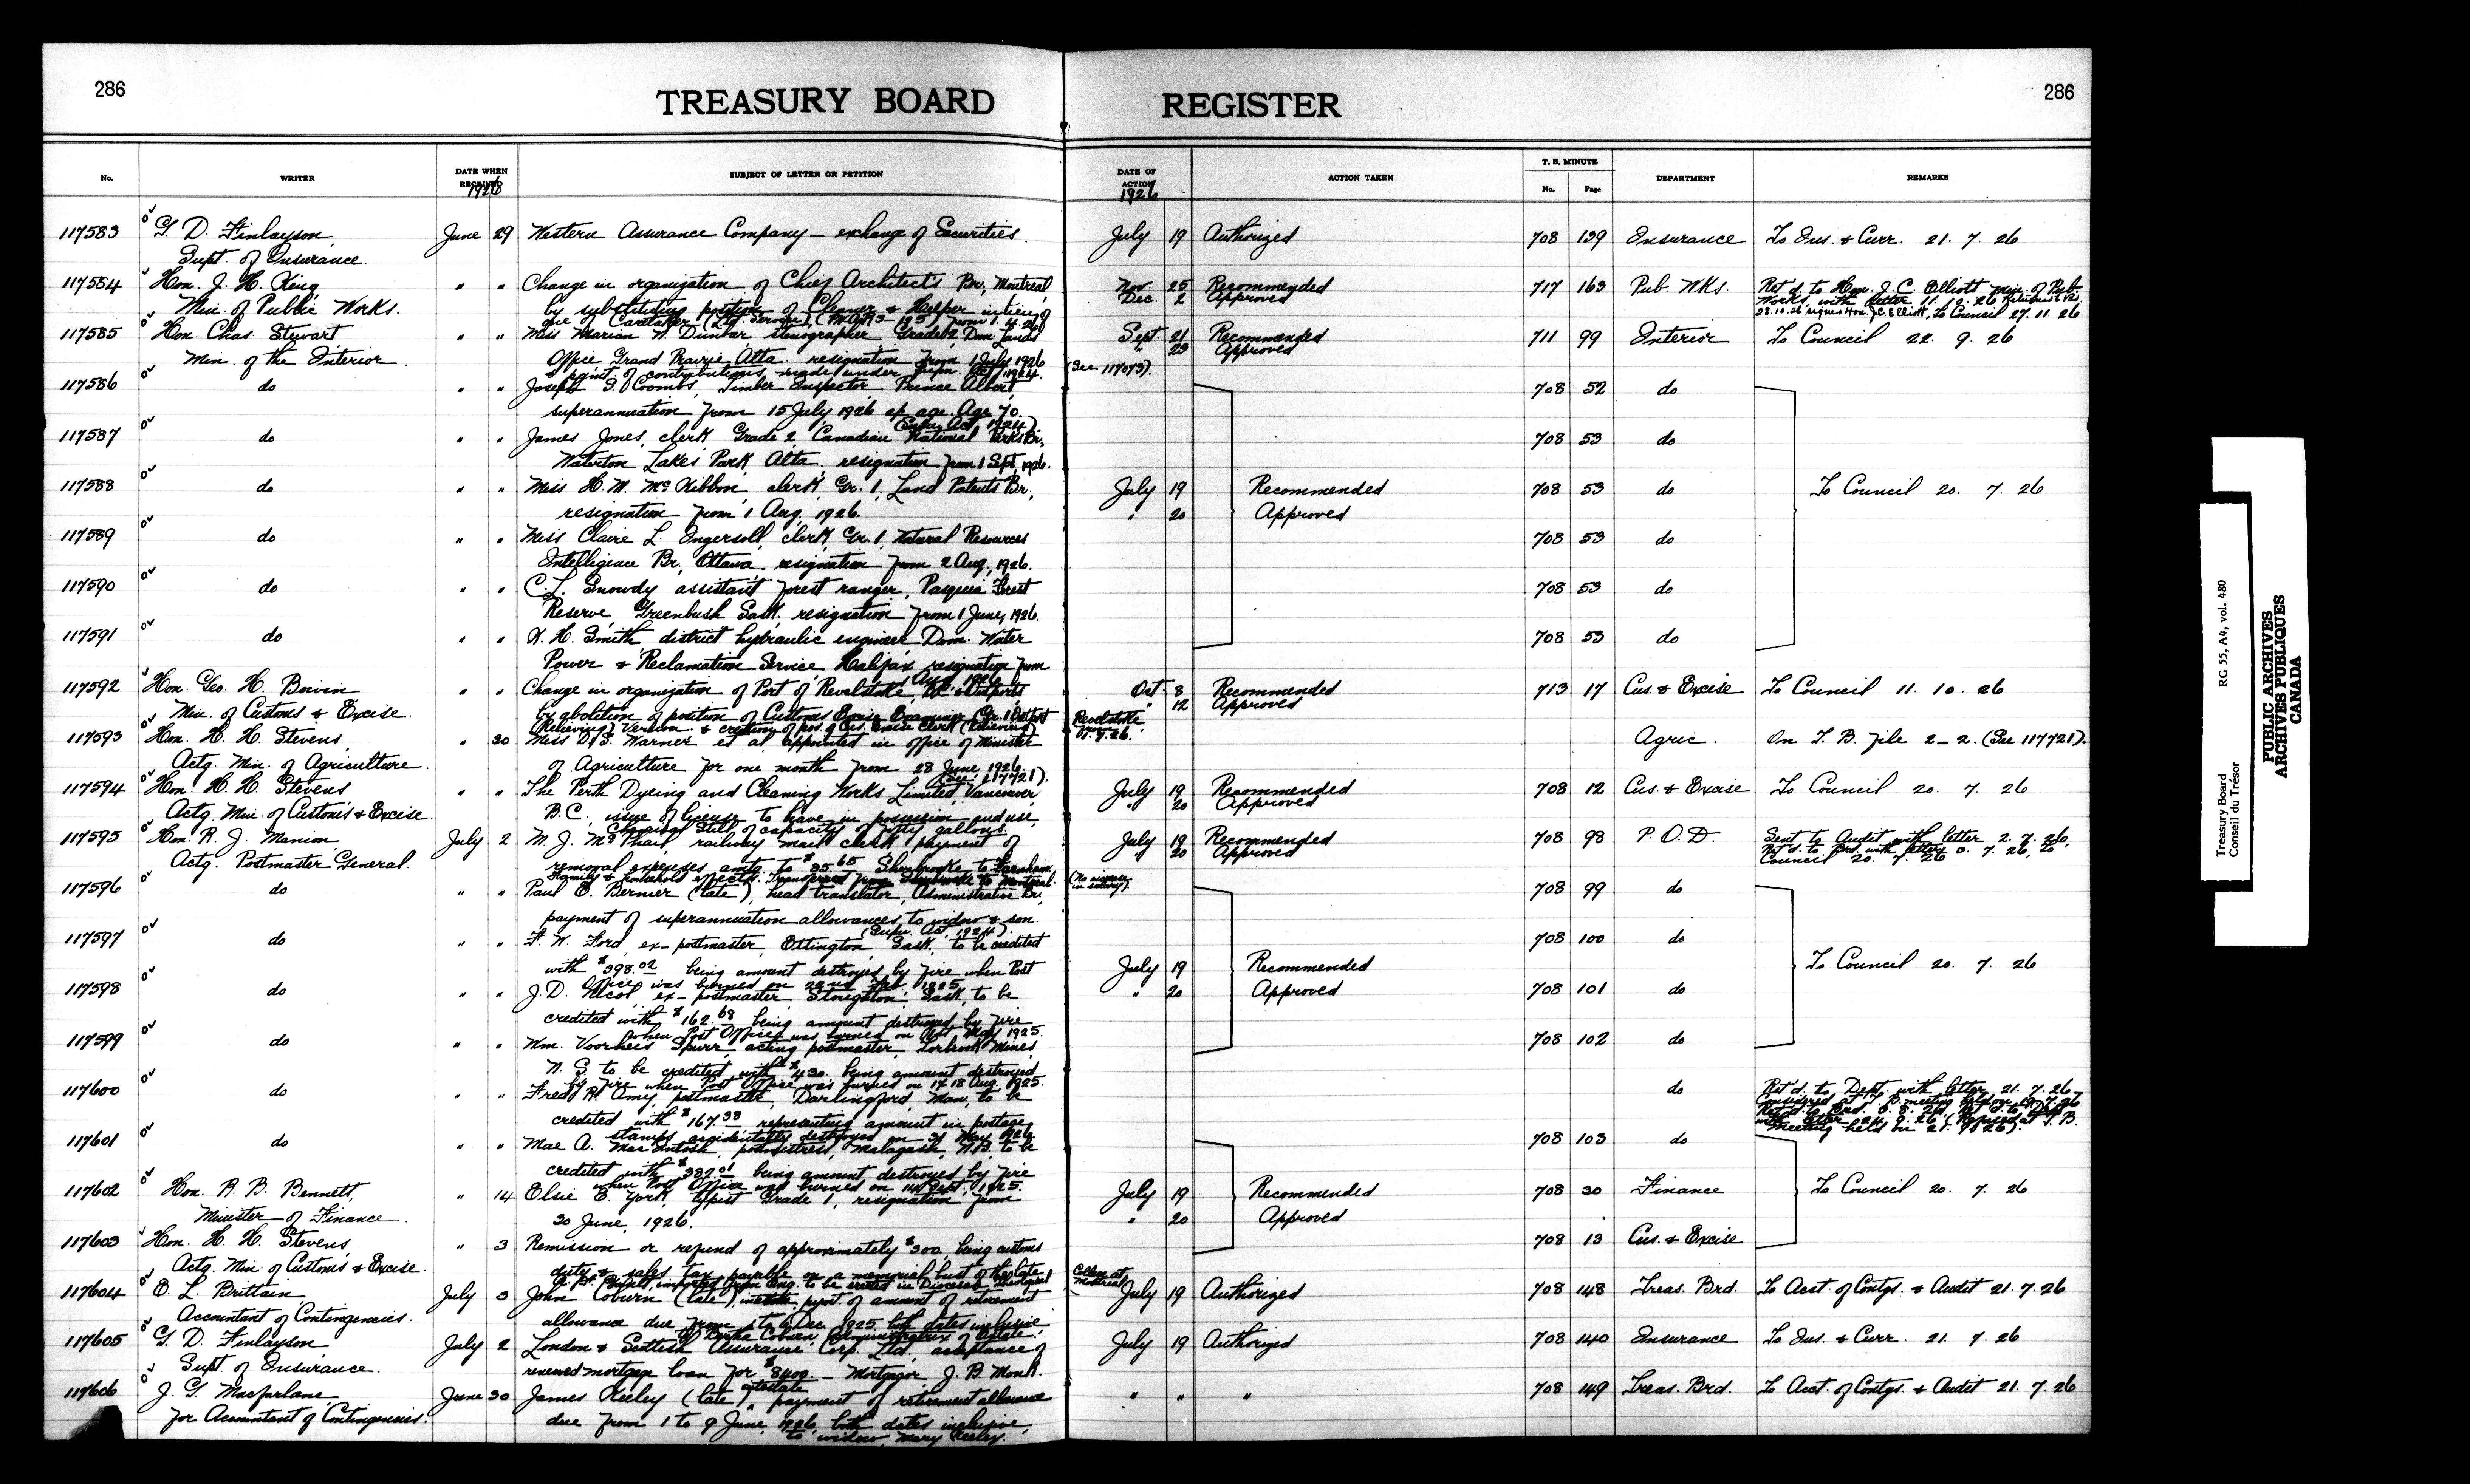 286
TREASURY BOARD REGISTER
286
No. WRITER DATE WHEN RECEIVED 1926 SUBJECT OF LETTER OR PETITION DATE OF ACTION 1926 ACTION TAKEN T. B. MINUTE No. Page DEPARTMENT REMARKS
117583 G. D. Finlayson, June 29 Western Assurance Company – exchange of Securities. July 19 Authorized 708 139 Insurance To Ins. & Curr. 21. 7. 26
Supt. of Insurance.
117584 Hon. J. H. King, " " Change in organization of Chief Architect's Br., Montreal, Nov. 25 Recommended 717 163 Pub. Wks. Ret'd. to Hon. J. C. Elliott Min. of Pub.
Min. of Public Works. by substituting position of Cleaner & Helper in lieu of Dec. 2 Approved Works, with letter 11. 10. 26
one of Caretaker 28.10.26 Hon. J.C. Elliott, To Council 27. 11. 26
117585 Hon. Chas. Stewart, " " Miss Marian W. Dunbar stenographer Grade 2, Dom. Lands Sept. 21 Recommended 711 99 Interior To Council 22. 9. 26
Min. of the Interior. Office Grand Prairie, Alta. resignation from 1 July, 1926 " 23 Approved
& paymt. of contributions made under Supn. Act 1924. (See 117073).
117586 do " " Joseph S. Coombs, Timber Inspector Prince Albert, 708 52 do
superannuation from 15 July, 1926 a/c age. Age 70.
(Supn. Act, 1924).
117587 do " " James Jones, clerk Grade 2, Canadian National Parks Br., 708 53 do
Waterton Lakes Park, Alta. resignation from 1 Sept, 1926.
117588 do " " Miss H. M. McKibbon, clerk, Gr. 1, Land Patents Br., July 19 Recommended 708 53 do To Council 20. 7. 26
resignation from 1 Aug. 1926. " 20 Approved
117589 do " " Miss Claire L. Ingersoll, clerk, Gr. 1, Natural Resources 708 53 do
Intelligence Br., Ottawa. resignation from 2 Aug., 1926.
117590 do " " C. L. Snowdy assistant forest ranger, Pasquia Forest 708 53 do
Reserve, Greenbush Sask. resignation from 1 June, 1926.
117591 do " " H. Smith district hydraulic engineer Dom. Water 708 53 do
Power & Reclamation Service, Halifax resignation from
Aug. 1926
117592 Hon. Geo. H. Boivin " " Change in organization of Port of Revelstoke, B.C. & Outports Oct. 8 Recommended 713 17 Cus. & Excise To Council 11. 10. 26
Min. of Customs & Excise. by abolition of position of Customs Excise Examiner (Gr. 1 Outport " 12 Approved
Relieving) Vernon & creation of pos. of Cus. Excise Clerk (Relieving) Revelstoke
117593 Hon. H. H. Stevens, " 30 Miss D. S. Warner et al appointed in office of Minister Agric. On T. B. file 2–2. (See 117721).
Actg. Min. of Agriculture. of Agriculture for one month from 28 June 1926.
(See 117721).
117594 Hon. H. H. Stevens " " The Perth Dyeing and Cleaning Works Limited, Vancouver, July 19 Recommended 708 12 Cus. & Excise To Council 20. 7. 26
Actg. Min. of Customs & Excise. B.C. issue of license to have in possession and use, " 20 Approved
Chemical Still of capacity of fifty gallons.
117595 Hon. R. J. Manion, July 2 M. J. McPhail, railway mail clerk payment of July 19 Recommended 708 98 P. O. D. Sent to Audit with letter 2. 7. 26,
Actg. Postmaster General. removal expenses amtg. to $35.65 Sherbrooke to Farnham " 20 Approved Ret'd. to Brd. with letter 7. 26, To
(family & household effects). Transferred from Sherbrooke to Montreal. (No increase in salary). Council 20. 7. 26
117596 do " " Paul E. Bernier (late), head translator, Administrative Br., 708 99 do
payment of superannuation allowances, to widow & son.
(Supn. Act, 1924).
117597 do " " F. W. Ford, ex-postmaster, Ettington, Sask. to be credited 708 100 do
with $398.02 being amount destroyed by fire when Post July 19 Recommended To Council 20. 7. 26
Office was burned on 22nd Feb. 1925.
117598 do " " J. D. Nicol, ex-postmaster, Stoughton, Sask, to be " 20 Approved 708 101 do
credited with $162.68 being amount destroyed by fire
when Post Office was burned on May 1925.
117599 do " " Wm. Voorheis Spurr, acting postmaster Torbrook Mines, 708 102 do
N. S. to be credited with $430. being amount destroyed
by fire when Post Office was burned on 17-18 Aug. 1925.
117600 do " " Fred R. Amy, postmaster, Darlingford Man, to be do Ret'd. to Dept. with letter 21. 7. 26
credited with $167.38 representing amount in postage Considered at T. B. meeting held on 19. 7. 26
stamps accidentally destroyed on 31 May 1926. Ret'd. to Brd.
meeting held on 21. 9. 26).
117601 do " " Mae A. MacIntosh, postmistress, Malagash, to be 708 103 do
credited with $387.01 being amount destroyed by fire
when Post Office was burned on 14 Sept. 1925.
117602 Hon. R. B. Bennett, " 14 Elsie E. York, typist Grade 1, resignation from July 19 Recommended 708 30 Finance To Council 20. 7. 26
Minister of Finance. 30 June, 1926. " 20 Approved
117603 Hon. H. H. Stevens, " 3 Remission or refund of approximately $300, being customs 708 13 Cus. & Excise
Actg. Min. of Customs & Excise. duty & sales tax payable on a memorial bust of the late
imported from Eng. to be erected in Diocesan Theological College at Montreal
117604 E. L. Brittain July 3 John Coburn (late), paymt. of amount of retirement July 19 Authorized 708 148 Treas. Brd. To Acct. of Contgs. & Audit 21. 7. 26
Accountant of Contingencies. allowance due from 1 to 6 Dec. 1925 both dates inclusive
to Coburn, Administratrix of Estate.
117605 G. D. Finlayson, July 2 London & Scottish Assurance Corp. Ltd. acceptance of July 19 Authorized 708 140 Insurance To Ins. & Curr. 21. 7. 26
Supt. of Insurance. renewed mortgage loan for $8400. – Mortgagor J. B. Monk.
117606 J. G. Macfarlane June 30 James Keeley (late) intestate payment of retirement allowance " " " 708 149 Treas. Brd. To Acct. of Contgs. & Audit 21. 7. 26
for Accountant of Contingencies. due from 1 to 9 June, 1926, both dates inclusive,
to widow, Mary Keeley.
Treasury Board RG 55, A4, vol. 480
Conseil du Trésor
PUBLIC ARCHIVES
ARCHIVES PUBLIQUES
CANADA